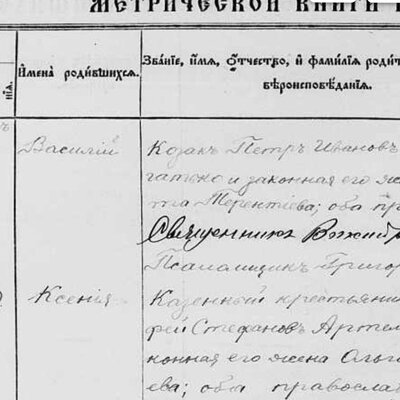 МЕТРИЧЕСКОЙ КНИГИ
нія.
Имена родившихся.
Званіе, имя, отчество, и фамилія родит
вѣроисповѣданія.
Василій
Козакъ Петръ Ивановъ
и законная его же
та Терентіева; оба пр
Священникъ
Псаломщикъ Григор
Ксенія
Казенный крестьянин
фей Стефановъ Артем
конная его жена Ольг
ева; оба православ